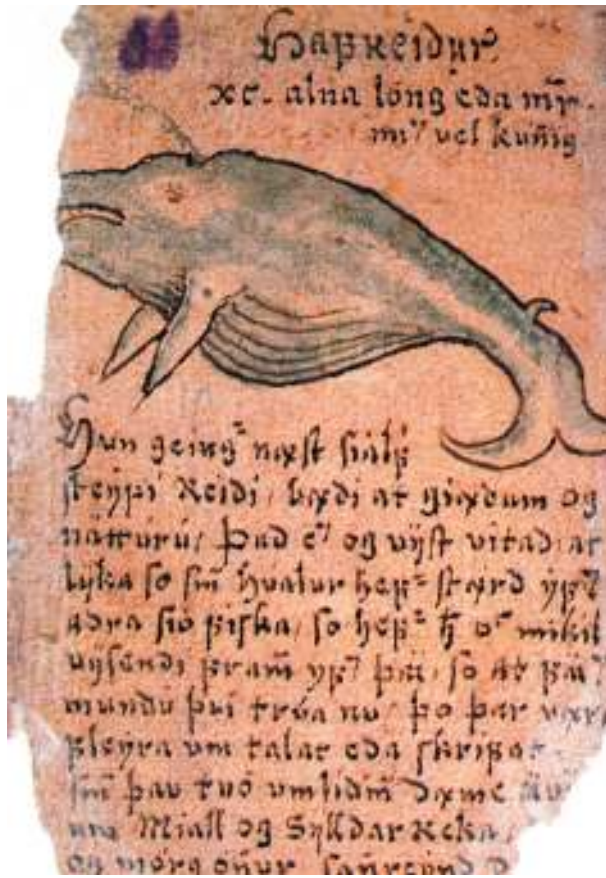 Hafreidur.
xc. alna lóng eda
vel kunig
Hun geing næst sialf
steypi Reidi, bædi at giædum og
nätturu, Þad er og vyst vitad at
lyka so sm hvalur hefr stærd yfr
adra sio fiska, so hefr mikil
vysendi fram yfr þä, so at
mundu þvi trúa nu, þo þar være
fleyra um talat eda skrifat.
sm þau tvó umlidin dæme
um Miall og Sylldar Reka,
og mórg ónur sanreynd